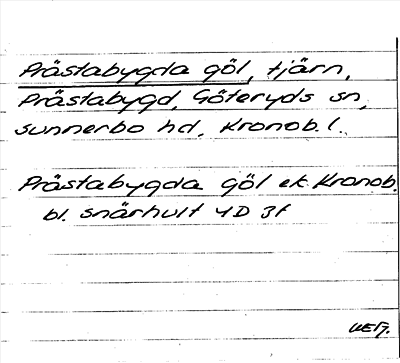 Prästabygda göl, tjärn,
Prästabygd, Göteryds sn,
Sunnerbo hd, Kronob. l.
Prästabygda Göl ek. Kronob.
bl. Snärhult 4D 3f